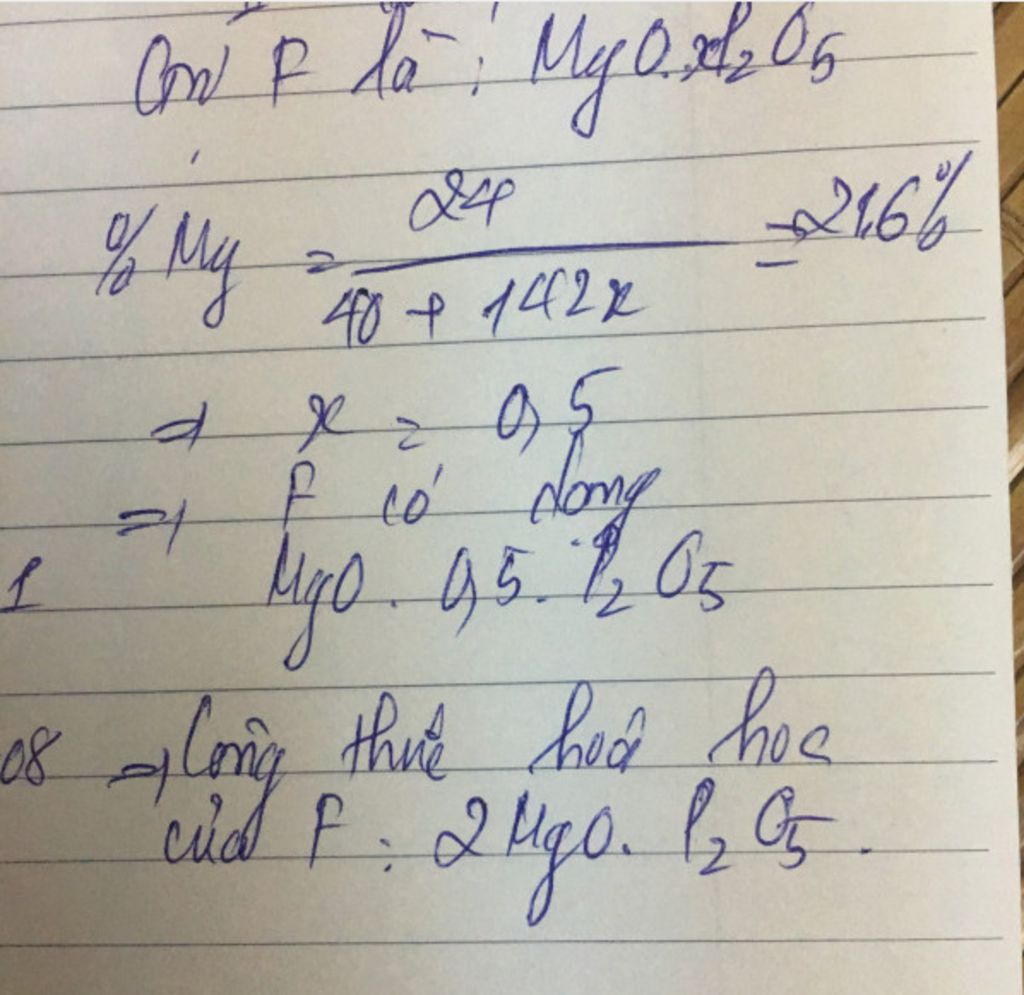 F là: MgO.xP₂O₅
% Mg = 24 / (40 + 142x) = 21,6%
⇒ x = 0,5
⇒ F có dạng
1 MgO. 0,5. P₂O₅
08 ⇒ Công thức hoá học
của F: 2MgO. P₂O₅.